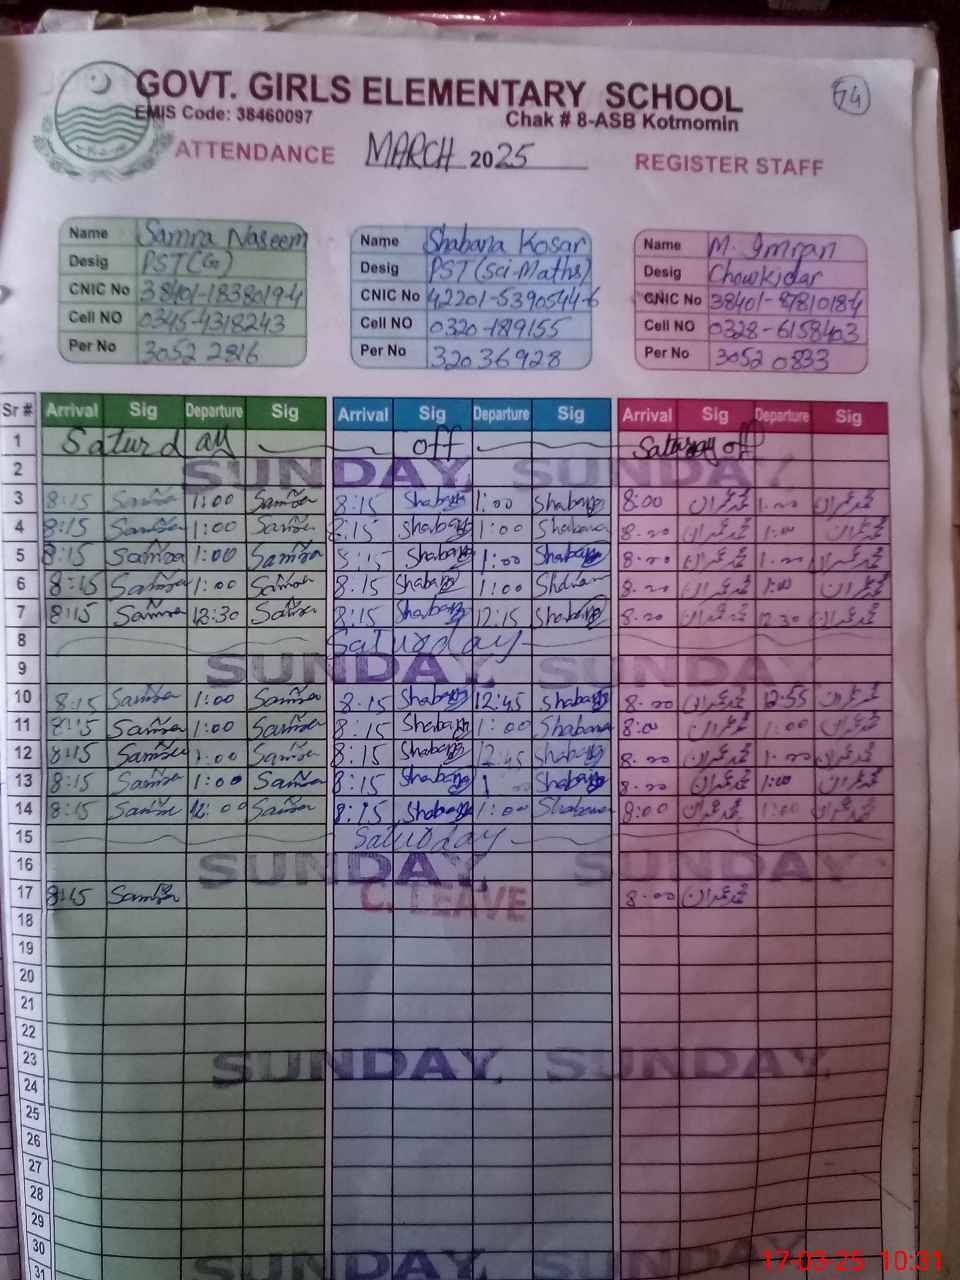 GOVT. GIRLS ELEMENTARY SCHOOL
74
EMIS Code: 38460097
Chak # 8-ASB Kotmomin
ATTENDANCE MARCH 2025 REGISTER STAFF
Name Samra Naseem
Desig PST(G)
CNIC No 38401-1838019-4
Cell NO 0345-4318243
Per No 3052 2816
Name Shabana Kosar
Desig PST (Sci-Maths)
CNIC No 42201-5390544-6
Cell NO 0320-1819155
Per No 320 36928
Name M. Imran
Desig Chowkidar
CNIC No 38401-8781018-4
Cell NO 0328-6158403
Per No 3052 0833
Sr # Arrival Sig Departure Sig Arrival Sig Departure Sig Arrival Sig Departure Sig
1 Saturday off Saturday off
2 SUNDAY, SUNDAY
3 8:15 Samra 1:00 Samra 8:15 Shabana 1:00 Shabana 8:00 محمد عمران 1:00 عمران
4 8:15 Samra 1:00 Samra 8:15 Shabana 1:00 Shabana 8:00 محمد عمران 1:00 عمران
5 8:15 Samra 1:00 Samra 8:15 Shabana 1:00 Shabana 8:00 محمد عمران 1:00 عمران
6 8:15 Samra 1:00 Samra 8:15 Shabana 1:00 8:00 محمد عمران 1:00 عمران
7 8:15 Samra 12:30 Samra 8:15 Shabana 12:15 Shabana 8:00 محمد عمران 12:30 محمد عمران
8 Saturday
9 SUNDAY, SUNDAY
10 8:15 Samra 1:00 Samra 8:15 Shabana 12:45 Shabana 8:00 محمد عمران 12:55 عمران
11 8:15 Samra 1:00 Samra 8:15 Shabana 1:00 Shabana 8:00 محمد عمران 1:00 عمران
12 8:15 Samra 1:00 Samra 8:15 Shabana 12:45 Shabana 8:00 محمد عمران 1:00 محمد عمران
13 8:15 Samra 1:00 Samra 8:15 Shabana Shabana 8:00 محمد عمران 1:00 عمران
14 8:15 Samra 12:00 Samra 8:15 Shabana 1:00 Shabana 8:00 محمد عمران 1:00 محمد عمران
15 Saturday
16 SUNDAY, SUNDAY
17 8:15 Samra C. LEAVE 8:00 محمد عمران
18
19
20
21
22
23 SUNDAY, SUNDAY
24
25
26
27
28
29
30 SUNDAY, SUNDAY
31
17-03-25 10:31